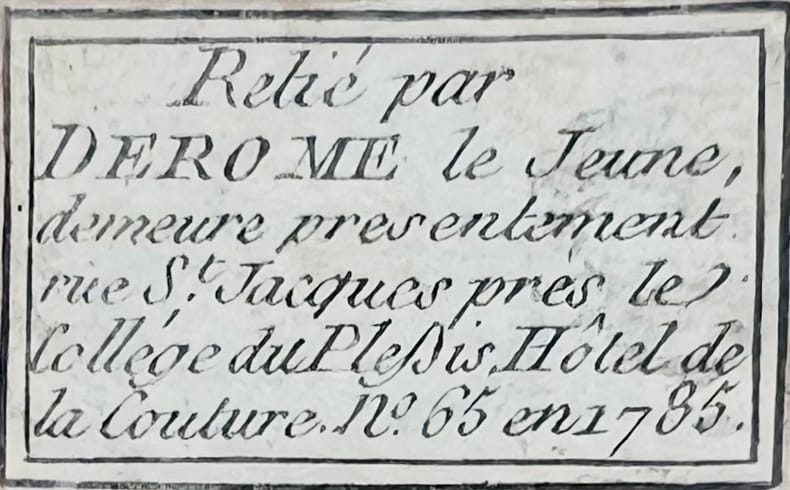 Relié par
DEROME le Jeune,
demeure presentement
rue S.t Jacques près le
Collége du Pleſsis, Hôtel de
la Couture. No. 65 en 1785.